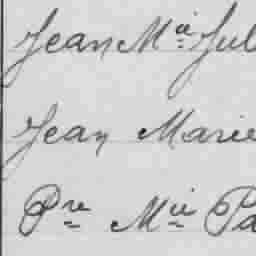 Jean Mie Jul
Jean Marie
Pre Mie Pa